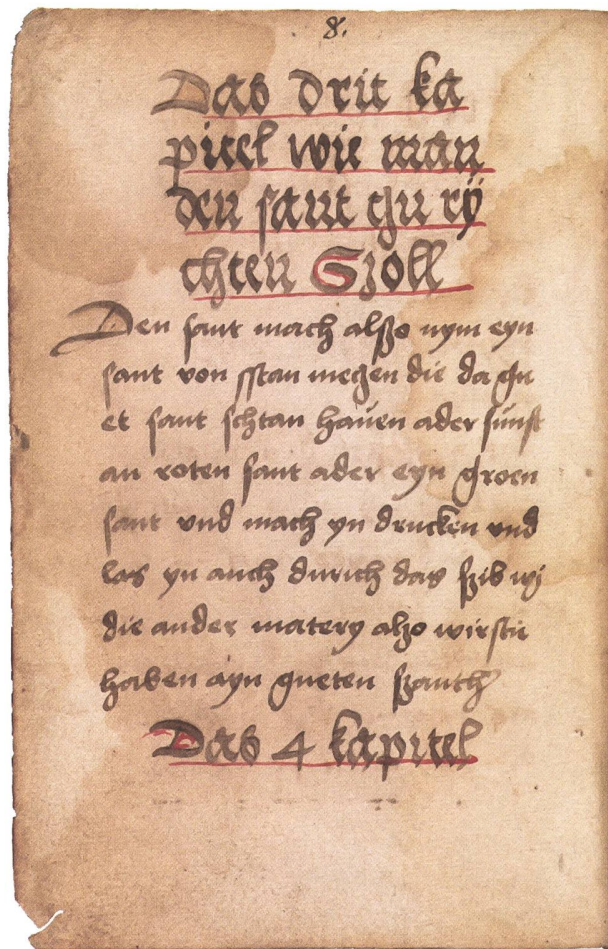 8.
Das drit ka
pitel wie man
den sant zu ry
chten Szoll
Den sant mach alßo nym eyn
sant von sstan mezen die da gu
et sant schtan haüen ader sünst
an roten sant ader eyn groen
sant vnd mach yn drucken vnd
las yn auch durich das szib wj
die ander matery alzo wirstu
haben ayn gueten szanth
Das 4 kapitel